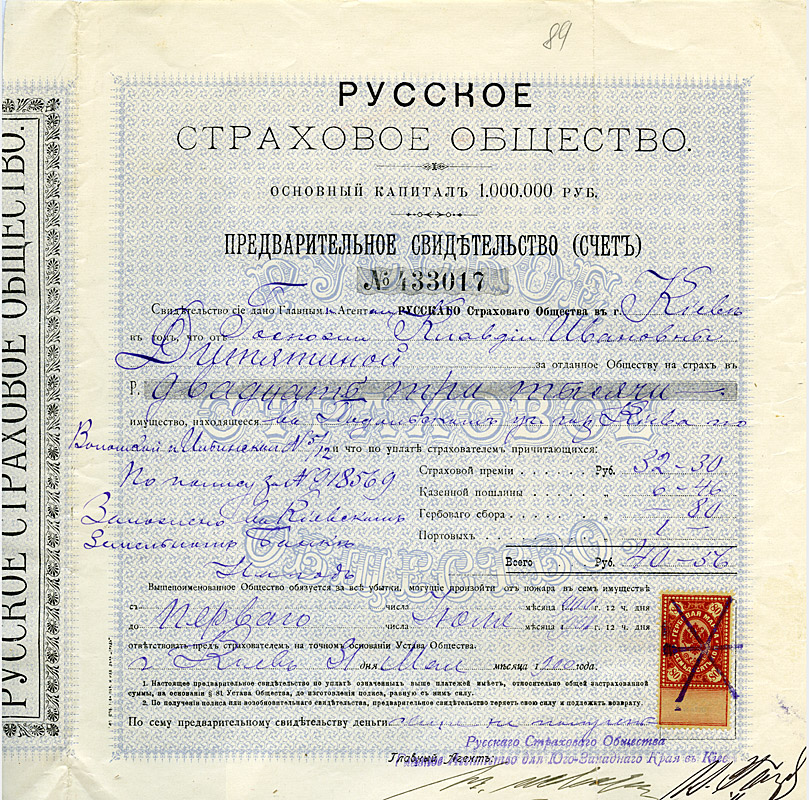 89
РУССКОЕ СТРАХОВОЕ ОБЩЕСТВО.
РУССКОЕ
СТРАХОВОЕ ОБЩЕСТВО.
ОСНОВНЫЙ КАПИТАЛЪ 1.000.000 РУБ.
ПРЕДВАРИТЕЛЬНОЕ СВИДѢТЕЛЬСТВО (СЧЕТЪ)
№ 433017
Свидѣтельство сіе дано Главнымъ Агент РУССКАГО Страховаго Общества въ г. Кіевѣ
въ томъ, что от Госпожи Клавдіи Ивановны
за отданное Обществу на страхъ въ
Р. двадцать три тысячи
имущество, находящееся въ г. Кіева по
№ 5/12 и что по уплатѣ страхователемъ причитающихся:
По полису за № 918569
Страховой преміи Руб. 32-30
Казенной пошлины „ 6-46
Заложено въ Кіевскомъ
Гербоваго сбора „ 80
Земельномъ Банкѣ
Портовыхъ „ 1
Всего Руб. 40-56
Вышепоименованное Общество обязуется за всѣ убытки, могущіе произойти отъ пожара въ семъ имуществѣ
съ числа мѣсяца 1 г. 12 ч. дня
до перваго Іюля
числа мѣсяца 1 г. 12 ч. дня
отвѣтствовать предъ страхователемъ на точномъ основаніи Устава Общества.
г. Кіевъ 31 дня Мая мѣсяца 1 года.
1. Настоящее предварительное свидѣтельство по уплатѣ означенныхъ выше платежей имѣетъ, относительно общей застрахованной
суммы, на основаніи § 81 Устава Общества, до изготовленія полиса, равную съ нимъ силу.
2. По полученіи полиса или возобновительнаго свидѣтельства, предварительное свидѣтельство теряетъ свою силу и подлежитъ возврату.
По сему предварительному свидѣтельству деньги
Русскаго Страхового Общества
Главный Агентъ
Агентство для Юго-Западнаго Края въ Кіевѣ
80
80
80
80